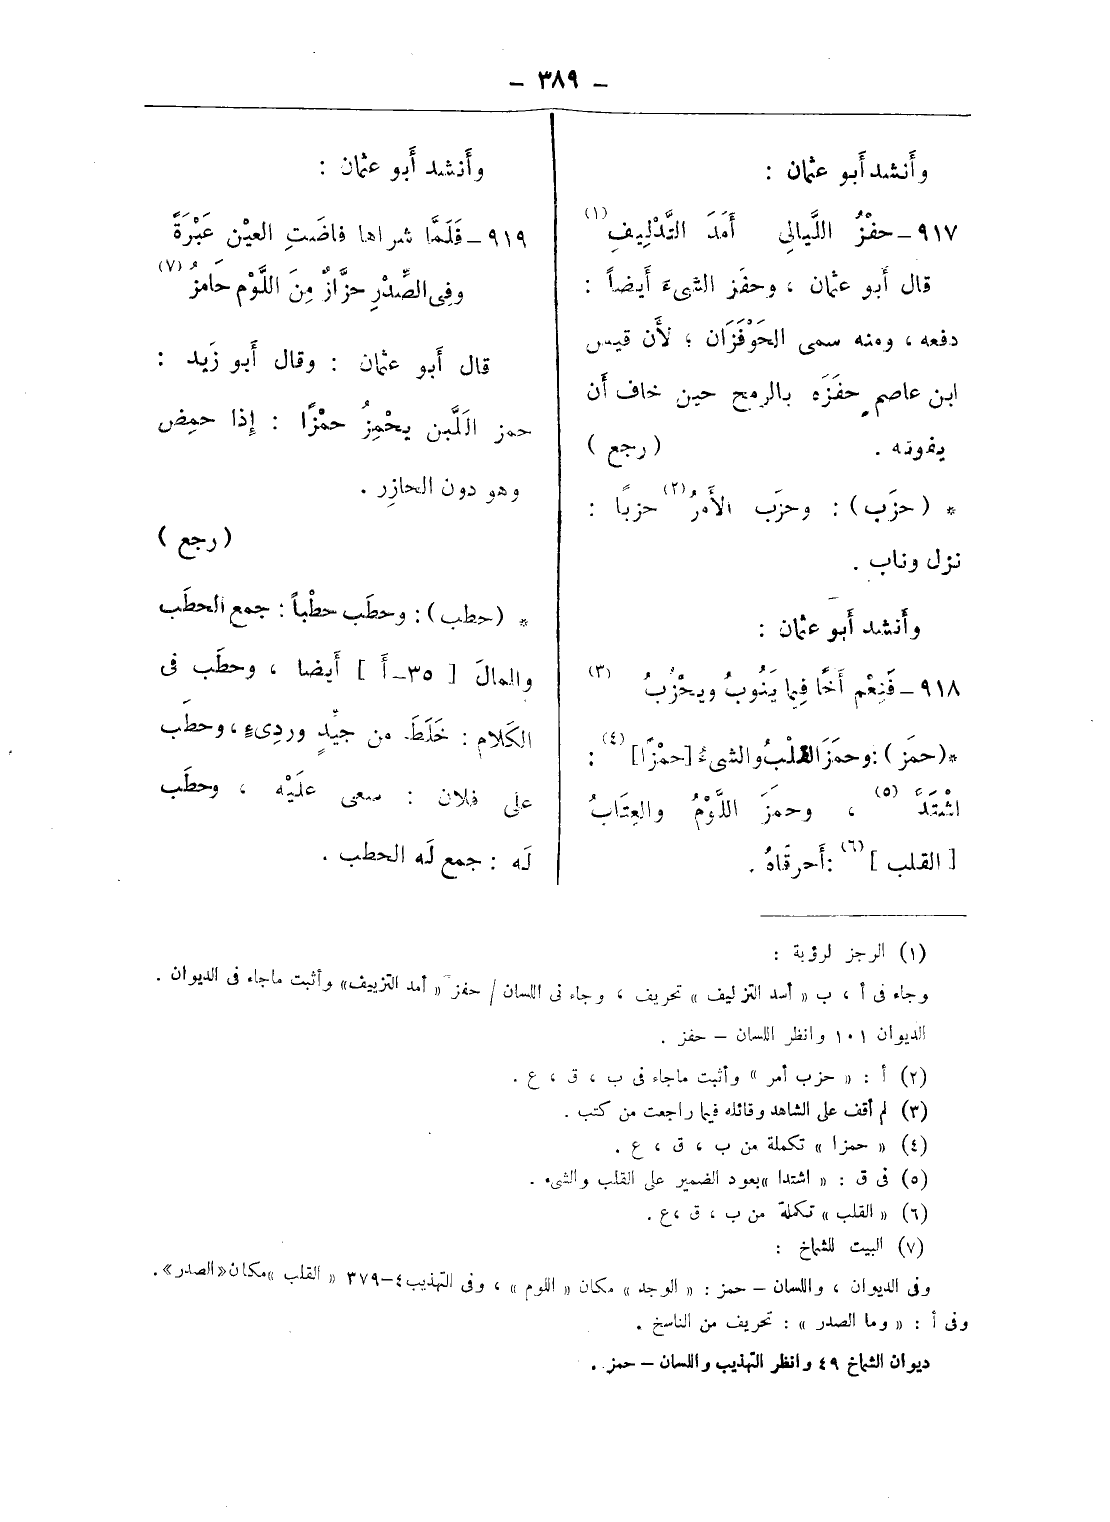 – ٣٨٩ –
وأَنشد أَبو عثمان :
٩١٧ – حفْزُ اللَّيالِي أَمَدَ التَّدْلِيفِ (١)
قال أَبو عثمان ، وحفَز الشىءَ أَيضاً :
دفعه ، ومنه سمى الحَوْفَزَان ؛ لأَن قيس
ابن عاصم حفَزَه بالرمح حين خاف أَن
يفوته . ( رجع )
* ( حزَب ) : وحزَب الأَمرُ (٢) حزبًا :
نزل وناب .
وأَنشد أَبو عثمان :
٩١٨ – فَنِعْم أَخًا فِيما يَنُوبُ ويحْزُبُ (٣)
* ( حمَز ) : وحمَزَ القلْبُ والشىءُ [ حمْزًا ] (٤) :
اشْتَدَّ (٥) ، وحمَزَ اللَّوْمُ والعِتَابُ
[ القلب ] (٦) : أَحرقَاهُ .
وأَنشد أَبو عثمان :
٩١٩ – فَلَمَّا شراها فاضَتِ العيْن عَبْرَةً
وفِى الصِّدْرِ حزَّازٌ مِنَ اللَّوْم حَامِزُ (٧)
قال أَبو عثمان : وقال أَبو زَيد :
حمز اللَّبن يحْمِزُ حمْزًا : إِذا حمِض
وهو دون الحازِر .
( رجع )
* ( حطب ) : وحطَب حطْباً : جمع الحطَب
والمالَ [ ٣٥ – أَ ] أَيضا ، وحطَب فى
الكَلام : خَلَطَ من جيِّدٍ وردِىءٍ ، وحطَب
على فلان : سعى علَيْه ، وحطَب
لَه : جمع لَه الحطب .
(١) الرجز لرؤبة :
وجاء فى أ ، ب « أسد التزليف » تحريف ، وجاء فى اللسان / حفز « أمد التزييف » وأثبت ماجاء فى الديوان .
الديوان ١٠١ وانظر اللسان – حفز .
(٢) أ : « حزب أمر » وأثبت ماجاء فى ب ، ق ، ع .
(٣) لم أقف على الشاهد وقائله فيما راجعت من كتب .
(٤) « حمزا » تكملة من ب ، ق ، ع .
(٥) فى ق : « اشتدا » بعود الضمير على القلب والشىء .
(٦) « القلب » تكملة من ب ، ق ، ع .
(٧) البيت للشماخ :
وفى الديوان ، واللسان – حمز : « الوجد » مكان « اللوم » ، وفى التهذيب ٤–٣٧٩ « القلب » مكان « الصدر » .
وفى أ : « وما الصدر » : تحريف من الناسخ .
ديوان الشماخ ٤٩ وانظر التهذيب واللسان – حمز .